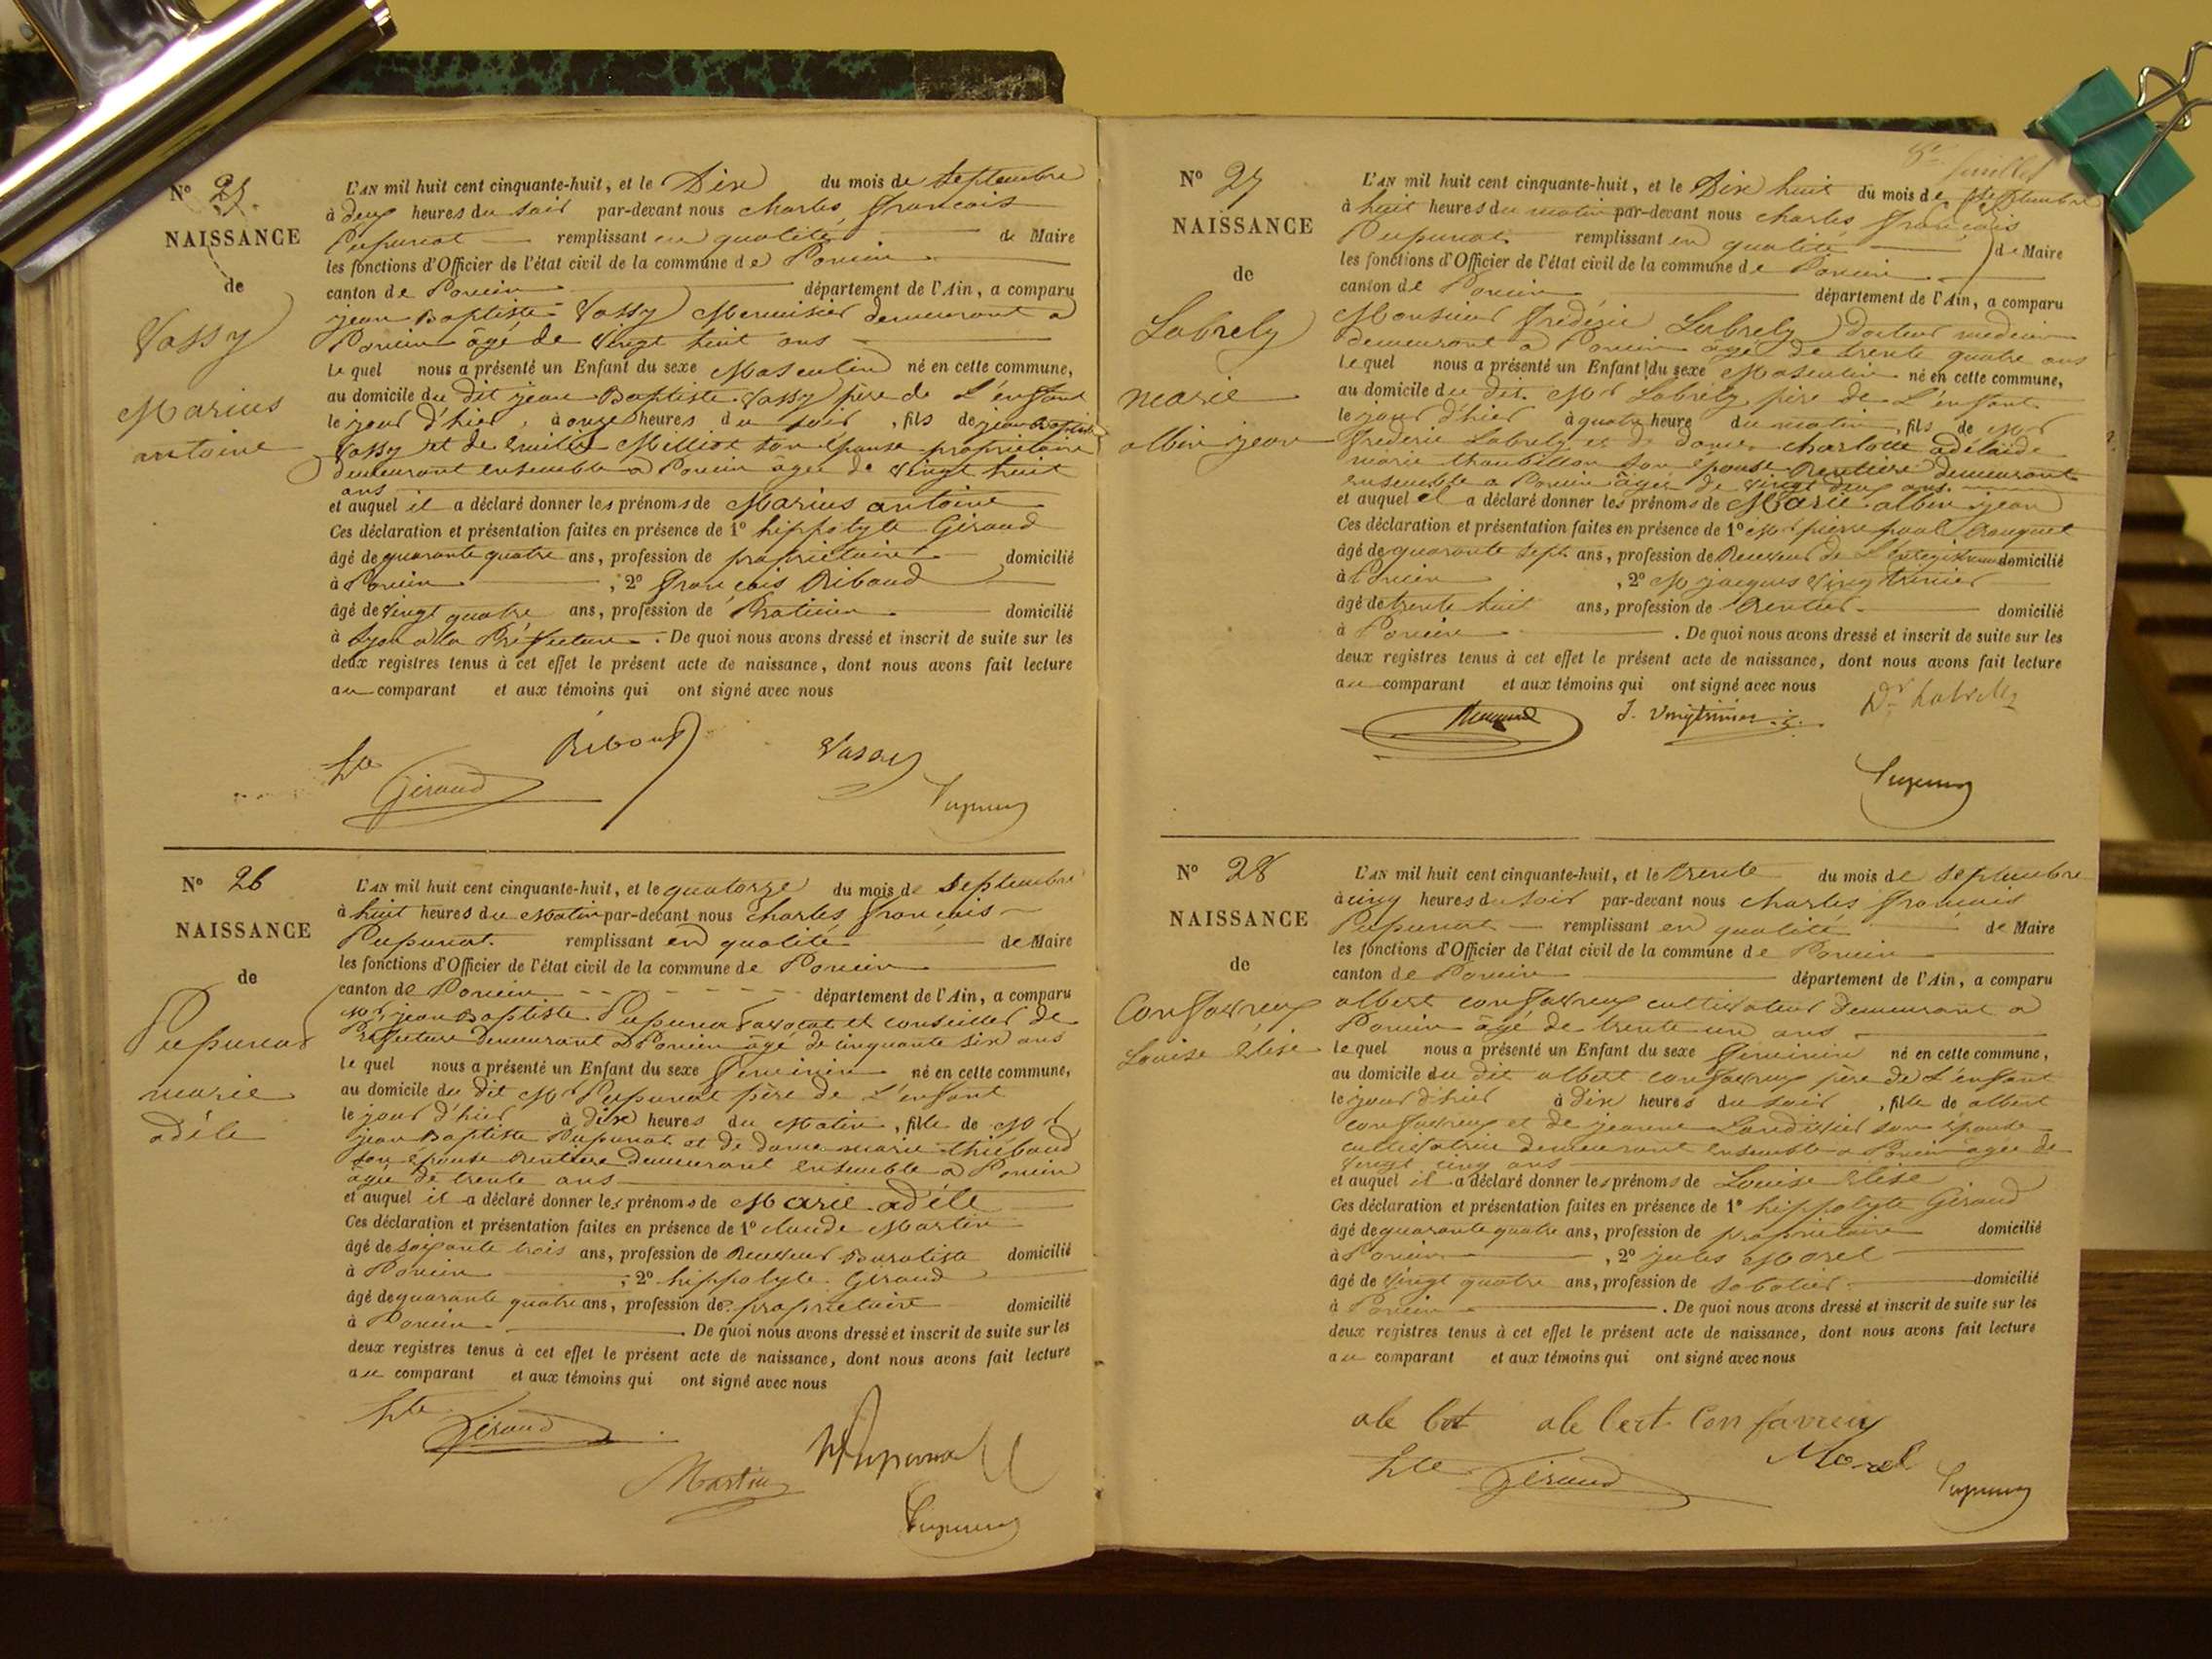 N° 25.
NAISSANCE
de
Vassy
Marius
antoine
L'AN mil huit cent cinquante-huit, et le Dix du mois de Septembre
à deux heures du soir par-devant nous charles françois
Pupunat remplissant en qualité de Maire
les fonctions d'Officier de l'état civil de la commune de Poncin
canton de Poncin département de l'Ain, a comparu
jean Baptiste Vassy Menuisier demeurant a
Poncin âgé de Vingt huit ans
Le quel nous a présenté un Enfant du sexe Masculin né en cette commune,
au domicile du dit jean Baptiste Vassy père de L'enfant
le jour d'hier, à onze heures du soir, fils de jean Baptiste
Vassy et de Emilie Milliot son épouse propriétaire
demeurant ensemble a Poncin âgée de vingt huit
ans
et auquel il a déclaré donner les prénoms de Marius antoine
Ces déclaration et présentation faites en présence de 1° hippolyte Giraud
âgé de quarante quatre ans, profession de propriétaire domicilié
à Poncin ; 2° François Ribaud
âgé de Vingt quatre ans, profession de Praticien domicilié
à Lyon a la Préfecture. De quoi nous avons dressé et inscrit de suite sur les
deux registres tenus à cet effet le présent acte de naissance, dont nous avons fait lecture
au comparant et aux témoins qui ont signé avec nous
hte Giraud Riboud Vassy Pupunat
N° 26
NAISSANCE
de
Pupunat
marie
adéle
L'AN mil huit cent cinquante-huit, et le quatorze du mois de Septembre
à huit heures du Matin par-devant nous charles françois
Pupunat. remplissant en qualité de Maire
les fonctions d'Officier de l'état civil de la commune de Poncin
canton de Poncin département de l'Ain, a comparu
Mr jean Baptiste Pupunat avocat et conseiller de
Préfecture demeurant a Poncin âgé de cinquante six ans
Le quel nous a présenté un Enfant du sexe Feminin né en cette commune,
au domicile du dit Mr Pupunat père de L'enfant
le jour d'hier à dix heures du Matin, fille de Mr
jean Baptiste Pupunat et de dame marie thiébaud
son épouse Rentiere demeurant ensemble a Poncin
âgée de trente ans
et auquel il a déclaré donner les prénoms de Marie adéle
Ces déclaration et présentation faites en présence de 1° claude Martin
âgé de soixante trois ans, profession de Receveur Buraliste domicilié
à Poncin ; 2° hippolyte Giraud
âgé de quarante quatre ans, profession de propriétaire domicilié
à Poncin. De quoi nous avons dressé et inscrit de suite sur les
deux registres tenus à cet effet le présent acte de naissance, dont nous avons fait lecture
au comparant et aux témoins qui ont signé avec nous
hte Giraud Martin Pupunat
Pupunat
8e feuillet
N° 27
NAISSANCE
de
Labrely
marie
albin jean
L'AN mil huit cent cinquante-huit, et le Dix huit du mois de Septembre
à huit heures du matin par-devant nous charles françois
Pupunat. remplissant en qualité de Maire
les fonctions d'Officier de l'état civil de la commune de Poncin
canton de Poncin département de l'Ain, a comparu
Monsieur Frédéric Labrely Docteur medecin
demeurant a Poncin âgé de trente quatre ans
Le quel nous a présenté un Enfant du sexe Masculin né en cette commune,
au domicile du dit Mr Labrely père de L'enfant
le jour d'hier à quatre heure du matin, fils de Mr
Frederic Labrely et de dame charlotte adélaide
marie son épouse Rentiere demeurant
ensemble a Poncin âgée de vingt deux ans.
et auquel il a déclaré donner les prénoms de Marie albin jean
Ces déclaration et présentation faites en présence de 1° Mr pierre paul
âgé de quarante sept ans, profession de Receveur de L'enregistrement domicilié
à Poncin, 2° Mr jacques Vingtrinier
âgé de trente huit ans, profession de Rentier domicilié
à Poncin. De quoi nous avons dressé et inscrit de suite sur les
deux registres tenus à cet effet le présent acte de naissance, dont nous avons fait lecture
au comparant et aux témoins qui ont signé avec nous
J. Vingtrinier Dr Labrely
Pupunat
N° 28
NAISSANCE
de
Confavreux
Louise Elise
L'AN mil huit cent cinquante-huit, et le trente du mois de Septembre
à cinq heures du soir par-devant nous charles françois
Pupunat remplissant en qualité de Maire
les fonctions d'Officier de l'état civil de la commune de Poncin
canton de Poncin département de l'Ain, a comparu
albert confavreux cultivateur demeurant a
Poncin âgé de trente un ans
Le quel nous a présenté un Enfant du sexe Feminin né en cette commune,
au domicile du dit albert confavreux père de L'enfant
le jour d'hier à dix heures du soir, fille de albert
confavreux et de jeanne son épouse
cultivatrice demeurant ensemble a Poncin âgée de
vingt cinq ans
et auquel il a déclaré donner les prénoms de Louise Elise
Ces déclaration et présentation faites en présence de 1° hippolyte Giraud
âgé de quarante quatre ans, profession de propriétaire domicilié
à Poncin, 2° jules Morel
âgé de Vingt quatre ans, profession de sabotier domicilié
à Poncin. De quoi nous avons dressé et inscrit de suite sur les
deux registres tenus à cet effet le présent acte de naissance, dont nous avons fait lecture
au comparant et aux témoins qui ont signé avec nous
ale bert ale bert Confavreux
hte Giraud Morel Pupunat